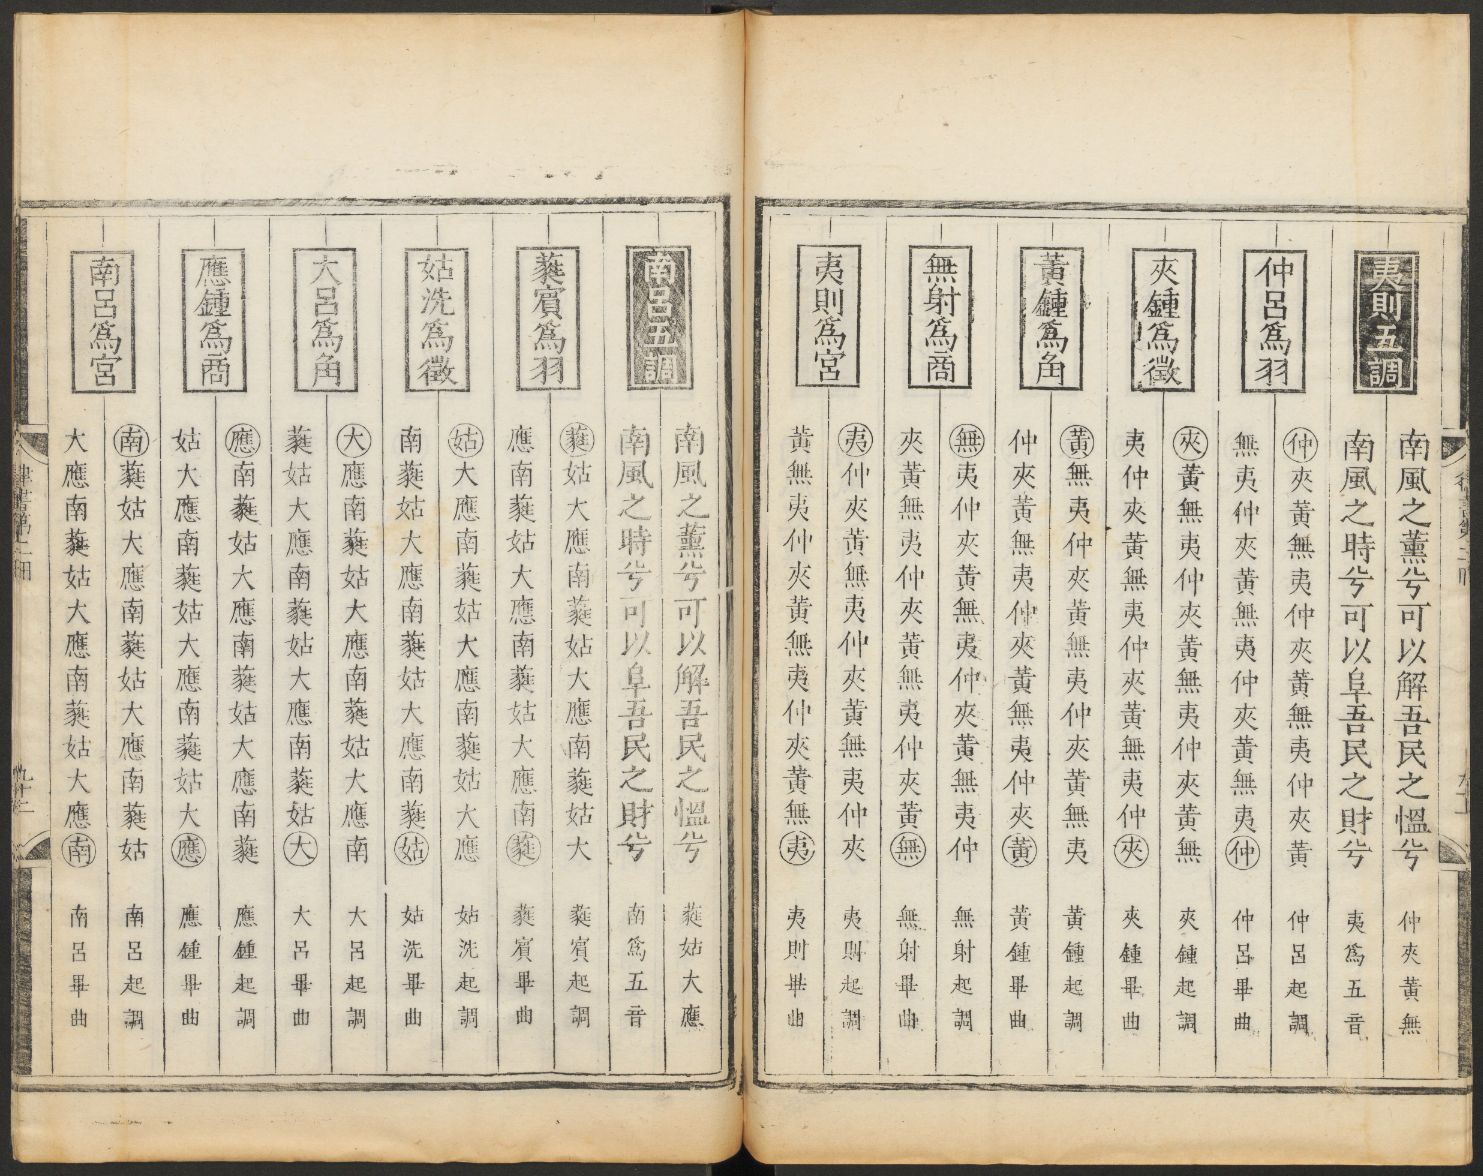 夷則五調
南風之薰兮可以解吾民之慍兮 仲夾黃無
南風之時兮可以阜吾民之財兮 夷爲五音
仲呂爲羽
仲夾黃無夷仲夾黃無夷仲夾黃 仲呂起調
無夷仲夾黃無夷仲夾黃無夷仲 仲呂畢曲
夾鍾爲徵
夾黃無夷仲夾黃無夷仲夾黃無 夾鍾起調
夷仲夾黃無夷仲夾黃無夷仲夾 夾鍾畢曲
黃鍾爲角
黃無夷仲夾黃無夷仲夾黃無夷 黃鍾起調
仲夾黃無夷仲夾黃無夷仲夾黃 黃鍾畢曲
無射爲商
無夷仲夾黃無夷仲夾黃無夷仲 無射起調
夾黃無夷仲夾黃無夷仲夾黃無 無射畢曲
夷則爲宮
夷仲夾黃無夷仲夾黃無夷仲夾 夷則起調
黃無夷仲夾黃無夷仲夾黃無夷 夷則畢曲
南呂五調
南風之薰兮可以解吾民之慍兮 蕤姑大應
南風之時兮可以阜吾民之財兮 南爲五音
蕤賓爲羽
蕤姑大應南蕤姑大應南蕤姑大 蕤賓起調
應南蕤姑大應南蕤姑大應南蕤 蕤賓畢曲
姑洗爲徵
姑大應南蕤姑大應南蕤姑大應 姑洗起調
南蕤姑大應南蕤姑大應南蕤姑 姑洗畢曲
大呂爲角
大應南蕤姑大應南蕤姑大應南 大呂起調
蕤姑大應南蕤姑大應南蕤姑大 大呂畢曲
應鍾爲商
應南蕤姑大應南蕤姑大應南蕤 應鍾起調
姑大應南蕤姑大應南蕤姑大應 應鍾畢曲
南呂爲宮
南蕤姑大應南蕤姑大應南蕤姑 南呂起調
大應南蕤姑大應南蕤姑大應南 南呂畢曲